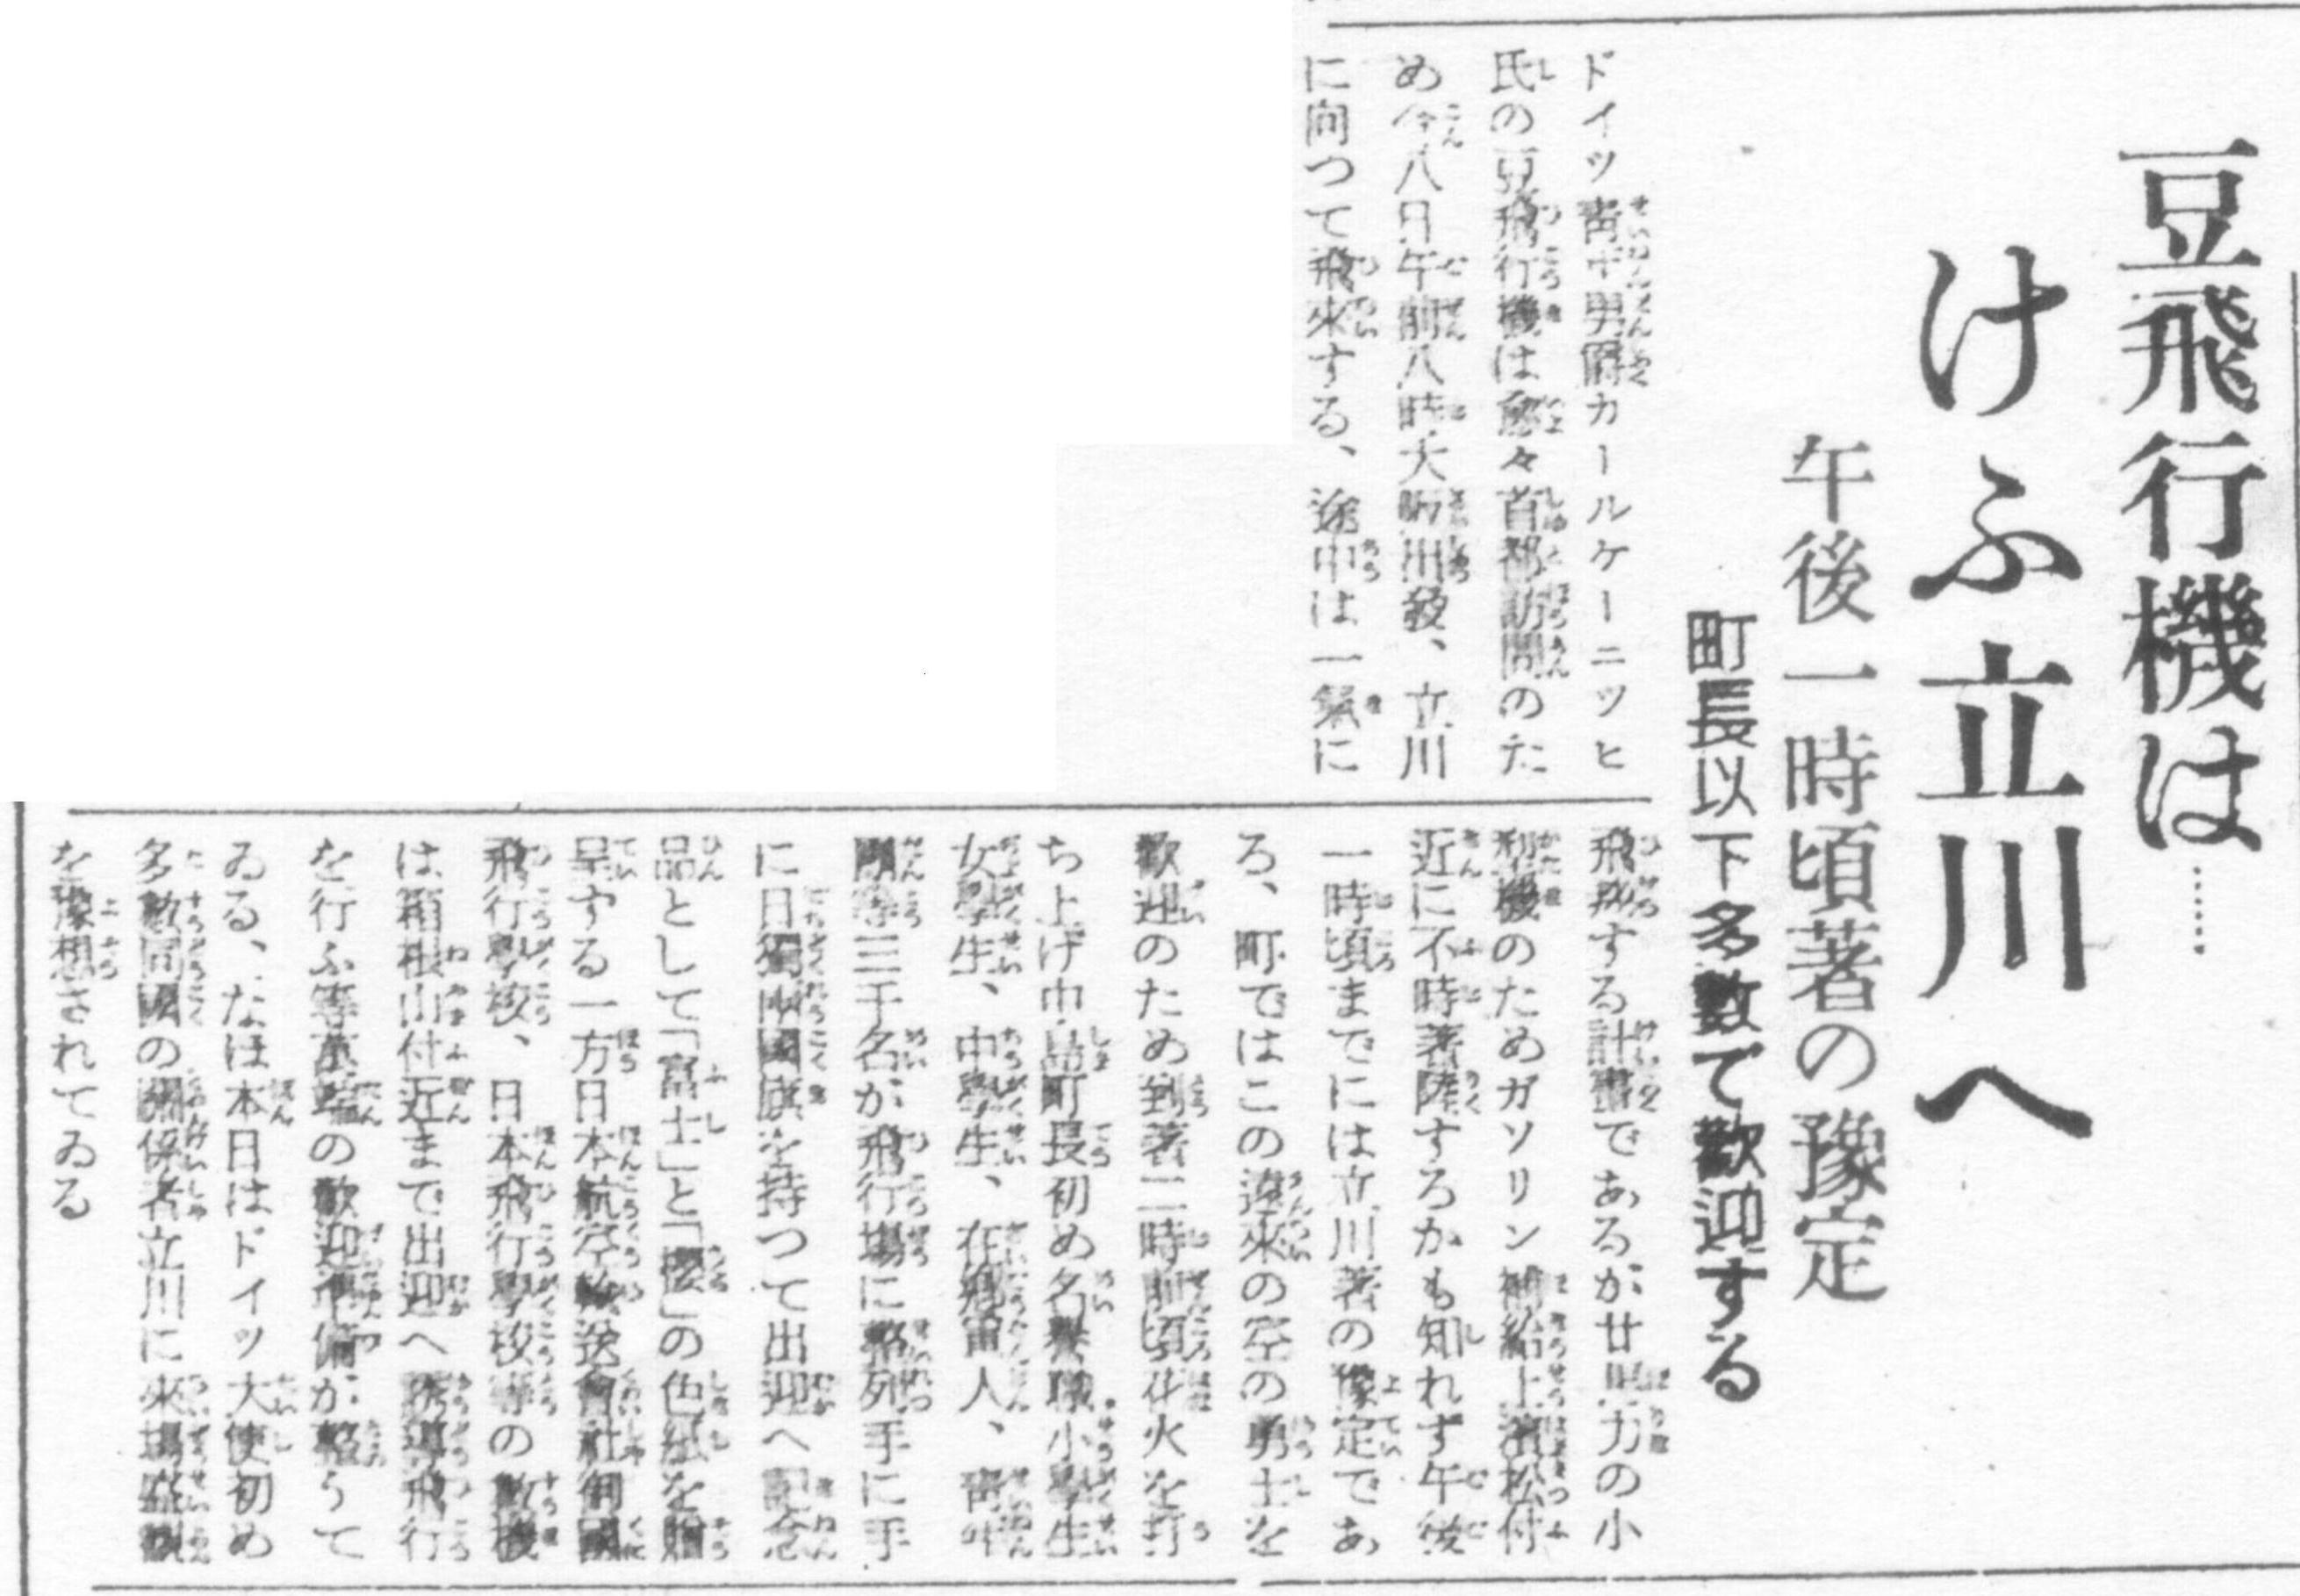 豆飛行機は……
けふ立川へ
午後一時頃著の豫定
町長以下多數で歡迎する
ドイツ靑年男爵カールケーニツヒ
氏の豆飛行機は愈々首都訪問のた
め今八日午前八時大阪出發、立川
に向つて飛來する、途中は一氣に
飛翔する計畫であるが廿馬力の小
型機のためガソリン補給上濱松付
近に不時著陸するかも知れず午後
一時頃までには立川著の豫定であ
る、町ではこの遠來の空の勇士を
歡迎のため到著二時前頃花火を打
ち上げ中島町長初め名譽職小學生
女學生、中學生、在鄕軍人、靑年
團等三千名が飛行場に整列手に手
に日獨兩國旗を持つて出迎へ記念
品として「富士」と「櫻」の色紙を贈
呈する一方日本航空輸送會社御國
飛行學校、日本飛行學校等の數機
は箱根山付近まで出迎へ誘導飛行
を行ふ等萬端の歡迎準備が整うて
ゐる、なほ本日はドイツ大使初め
多數同國の關係者立川に來場盛觀
を豫想されてゐる